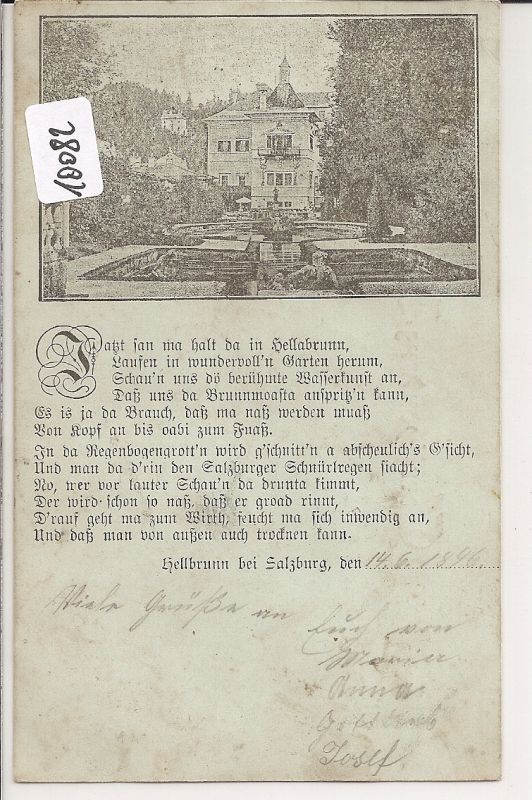 10082
Jatzt san ma halt da in Hellabrunn,
Laufen in wundervoll'n Garten herum,
Schau'n uns dö berühmte Wasserkunst an,
Daß uns da Brunnmoasta anspritz'n kann,
Es is ja da Brauch, daß ma naß werden muaß
Von Kopf an bis oabi zum Fuaß.
In da Regenbogengrott'n wird g'schnitt'n a abscheulich's G'sicht,
Und man da d'rin den Salzburger Schnürlregen siacht;
No, wer vor lauter Schau'n da drunta kimmt,
Der wird schon so naß, daß er groad rinnt,
D'rauf geht ma zum Wirth, feucht ma sich inwendig an,
Und daß man von außen auch trocknen kann.
Hellbrunn bei Salzburg, den 14. 6. 1896.
Viele Grüße an
Euch von
Maria
Anna
Josef